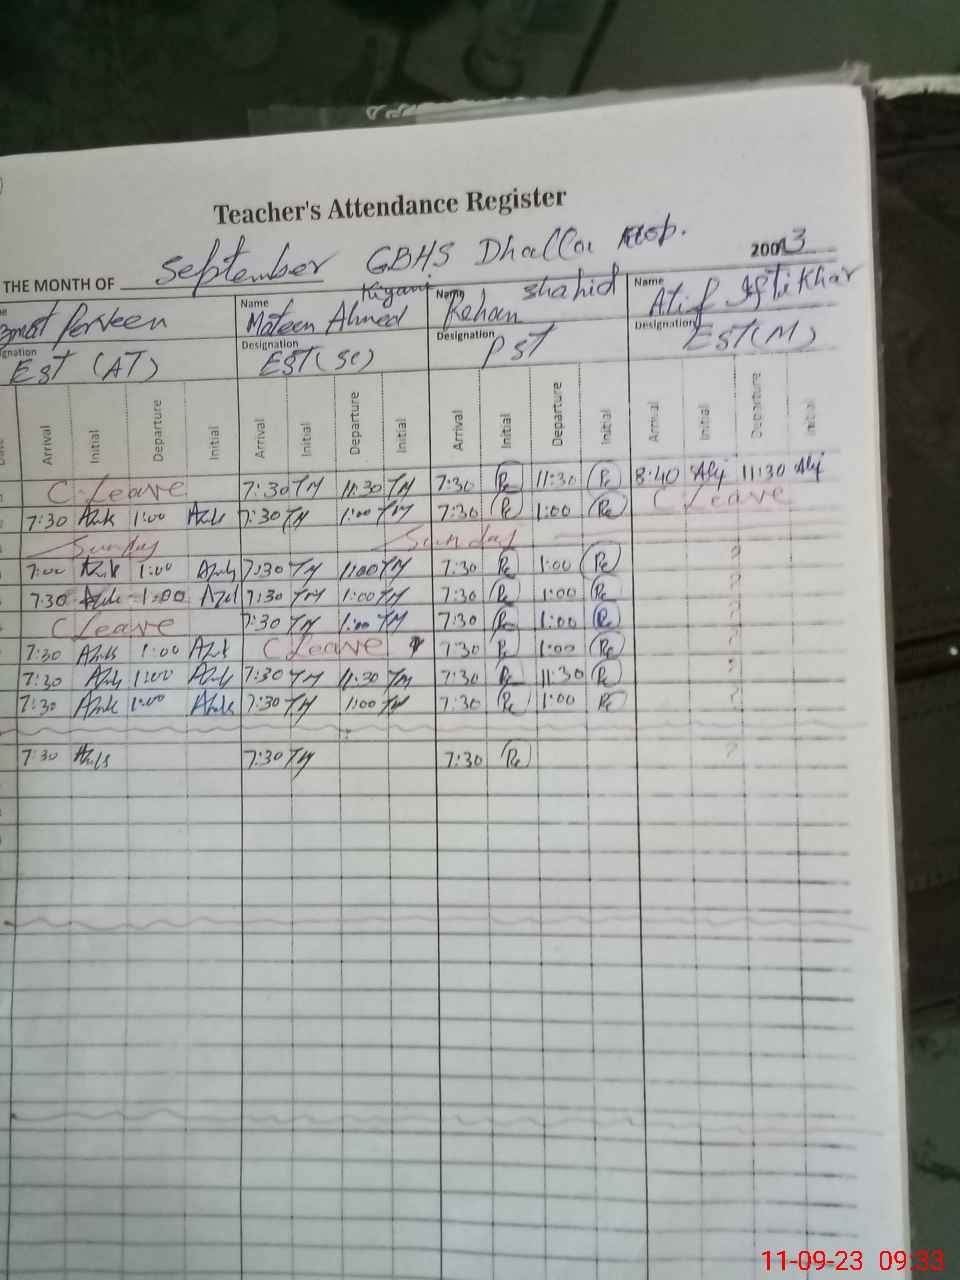 Teacher's Attendance Register
THE MONTH OF September GBHS Dhallai 2003
Perveen Name Mateen Ahmed Kiyani Name Rehan Shahid Name Atif Iftikhar
Designation EST (AT) Designation EST (SC) Designation PST Designation EST (M)
Arrival Initial Departure Initial Arrival Initial Departure Initial Arrival Initial Departure Initial Arrival Initial Departure Initial
C Leave 7:30 TM 11:30 TM 7:30 Re 11:30 Re 8:40 11:30
7:30 1:00 7:30 TM 1:00 TM 7:30 Re 1:00 Re C Leave
Sunday Sunday
7:00 1:00 7:30 TM 1:00 TM 7:30 Re 1:00 Re ?
7:30 1:00 7:30 TM 1:00 TM 7:30 Re 1:00 Re ?
C Leave 7:30 TM 1:00 TM 7:30 Re 1:00 Re ?
7:30 1:00 C Leave 7:30 Re 1:00 Re ?
7:30 1:00 7:30 TM 11:30 TM 7:30 Re 11:30 Re ?
7:30 1:00 7:30 TM 1:00 TM 7:30 Re 1:00 Re ?
7:30 7:30 TM 7:30 Re ?
11-09-23 09:33